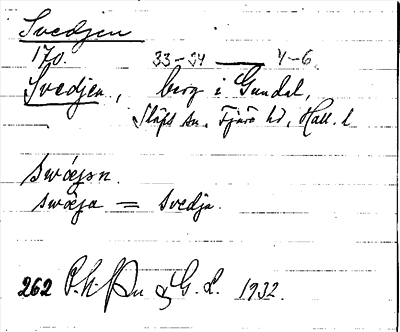 Svedjen
170. 33-34 — 4-6
Svedjen, berg i Gundal,
Släps sn. Fjärå hd, Hall. l
swæjən.
swæja = svedja.
262 & G. L. 1932.